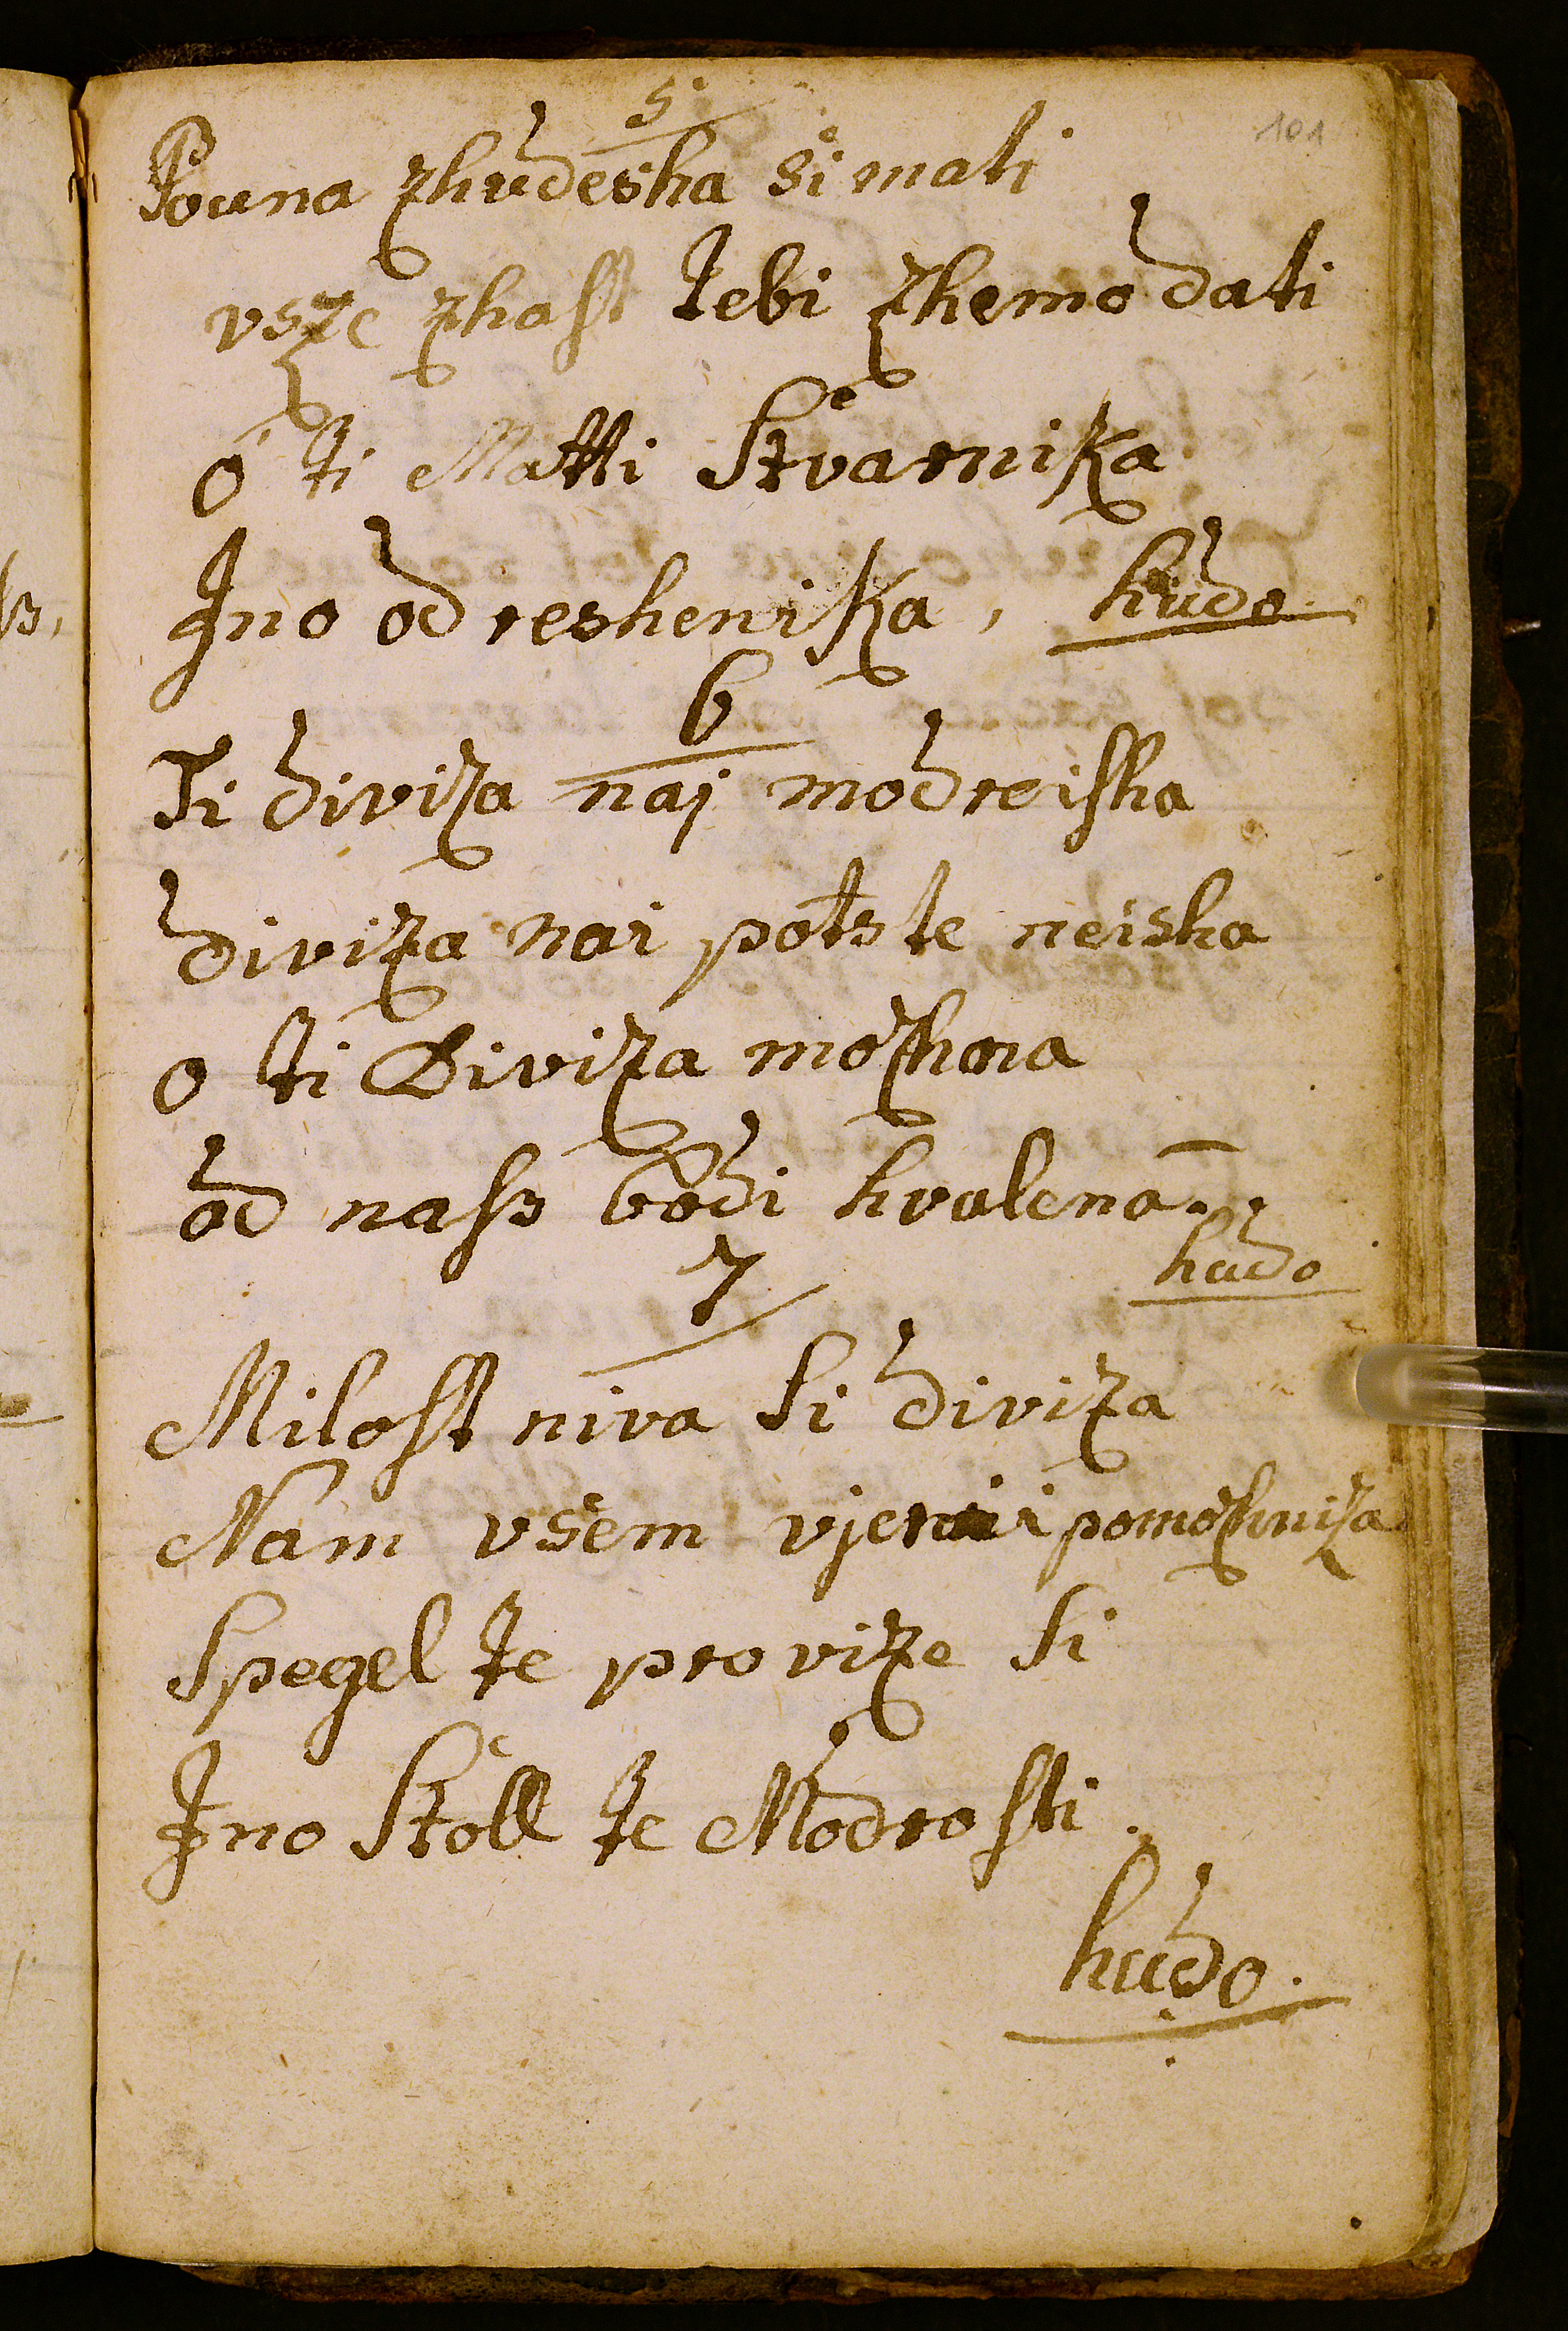 101
5.
Pouna zhudesha si mati
vsze zhast tebi zhemo dati
o ti Matti Stvarnika
Jno od reshenika, hudo.
6
Ti diviza naj modreisha
diviza nai potste neisha
o ti Diviza mozhna
od nass bodi hvalena.
hudo
7
Milost niva si diviza
Nam vsem pomozhniza
Spegel te pravize si
Jno Stoll te Modrosti.
hudo.